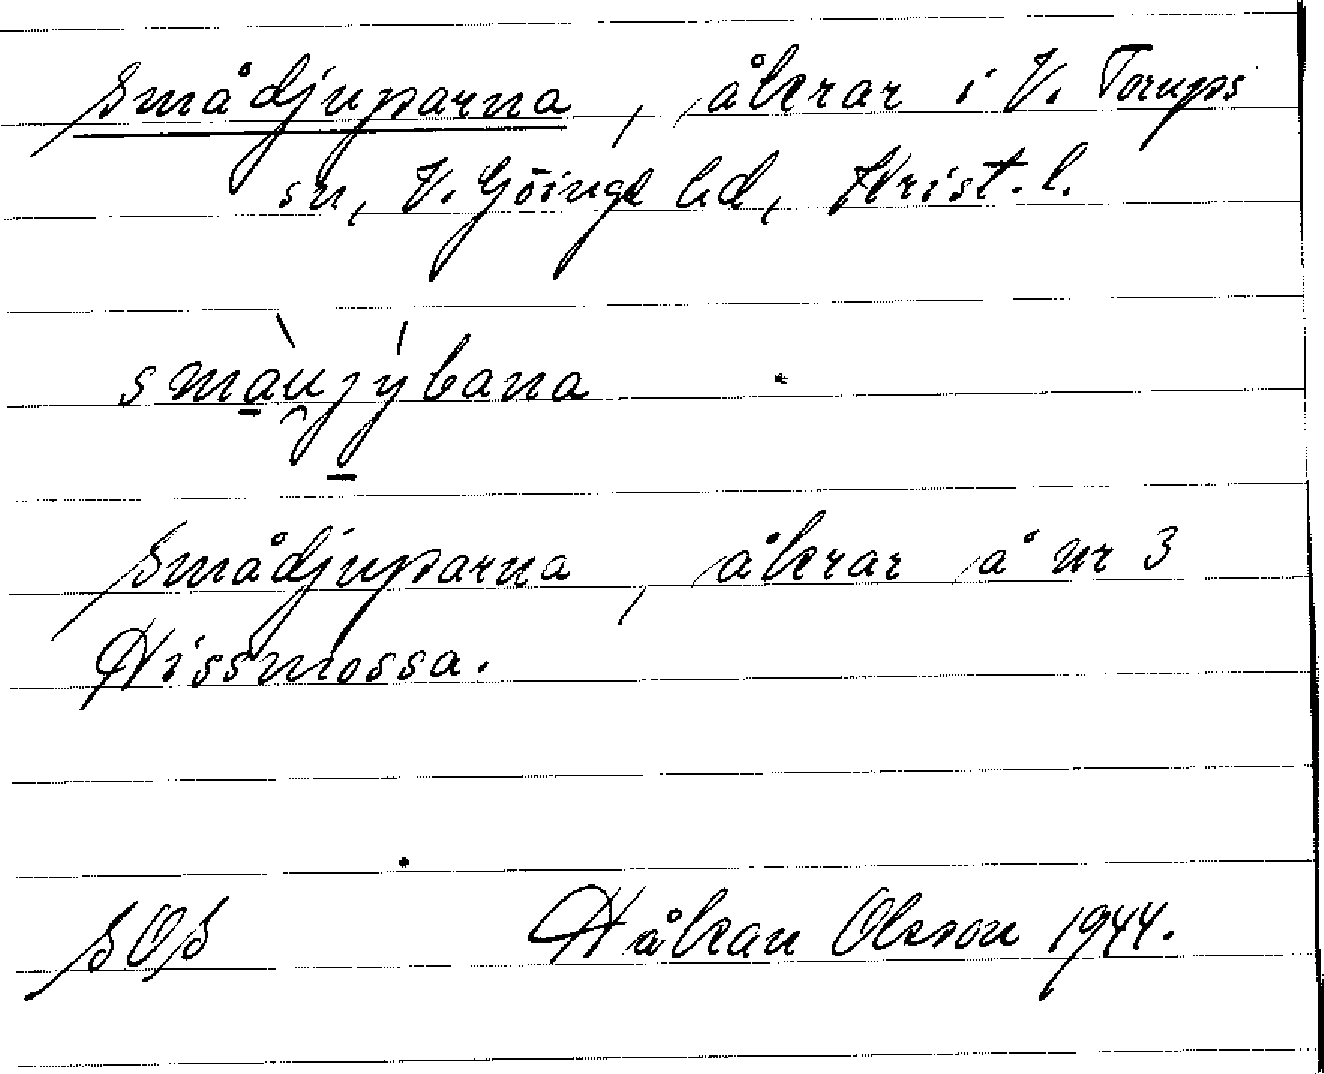 Smådjuparna, åkrar i V. Torups
sn, V. Göinge hd, Krist. l.
smàu̯jýbana
Smådjuparna, åkrar å nr 3
Hissmossa.
SOS Håkan Olsson 1944.